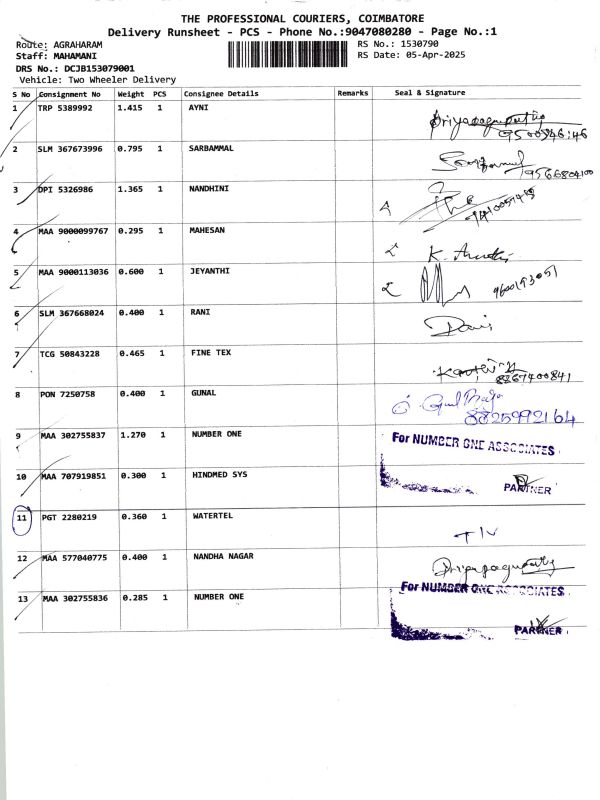 THE PROFESSIONAL COURIERS, COIMBATORE
Delivery Runsheet - PCS - Phone No.:9047080280 - Page No.:1
Route: AGRAHARAM RS No.: 1530790
Staff: MAHAMANI RS Date: 05-Apr-2025
DRS No.: DCJB153079001
Vehicle: Two Wheeler Delivery
S No Consignment No Weight PCS Consignee Details Remarks Seal & Signature
1 TRP 5389992 1.415 1 AYNI
2 SLM 367673996 0.795 1 SARBAMMAL
9566804100
3 DPI 5326986 1.365 1 NANDHINI
4 MAA 9000099767 0.295 1 MAHESAN
K.
5 MAA 9000113036 0.600 1 JEYANTHI
6 SLM 367668024 0.400 1 RANI
7 TCG 50843228 0.465 1 FINE TEX
8267400841
8 PON 7250758 0.400 1 GUNAL
8825992164
9 MAA 302755837 1.270 1 NUMBER ONE For NUMBER ONE ASSOCIATES
10 MAA 707919851 0.300 1 HINDMED SYS PARTNER
11 PGT 2280219 0.360 1 WATERTEL
12 MAA 577040775 0.400 1 NANDHA NAGAR
13 MAA 302755836 0.285 1 NUMBER ONE For NUMBER ONE ASSOCIATES
PARTNER